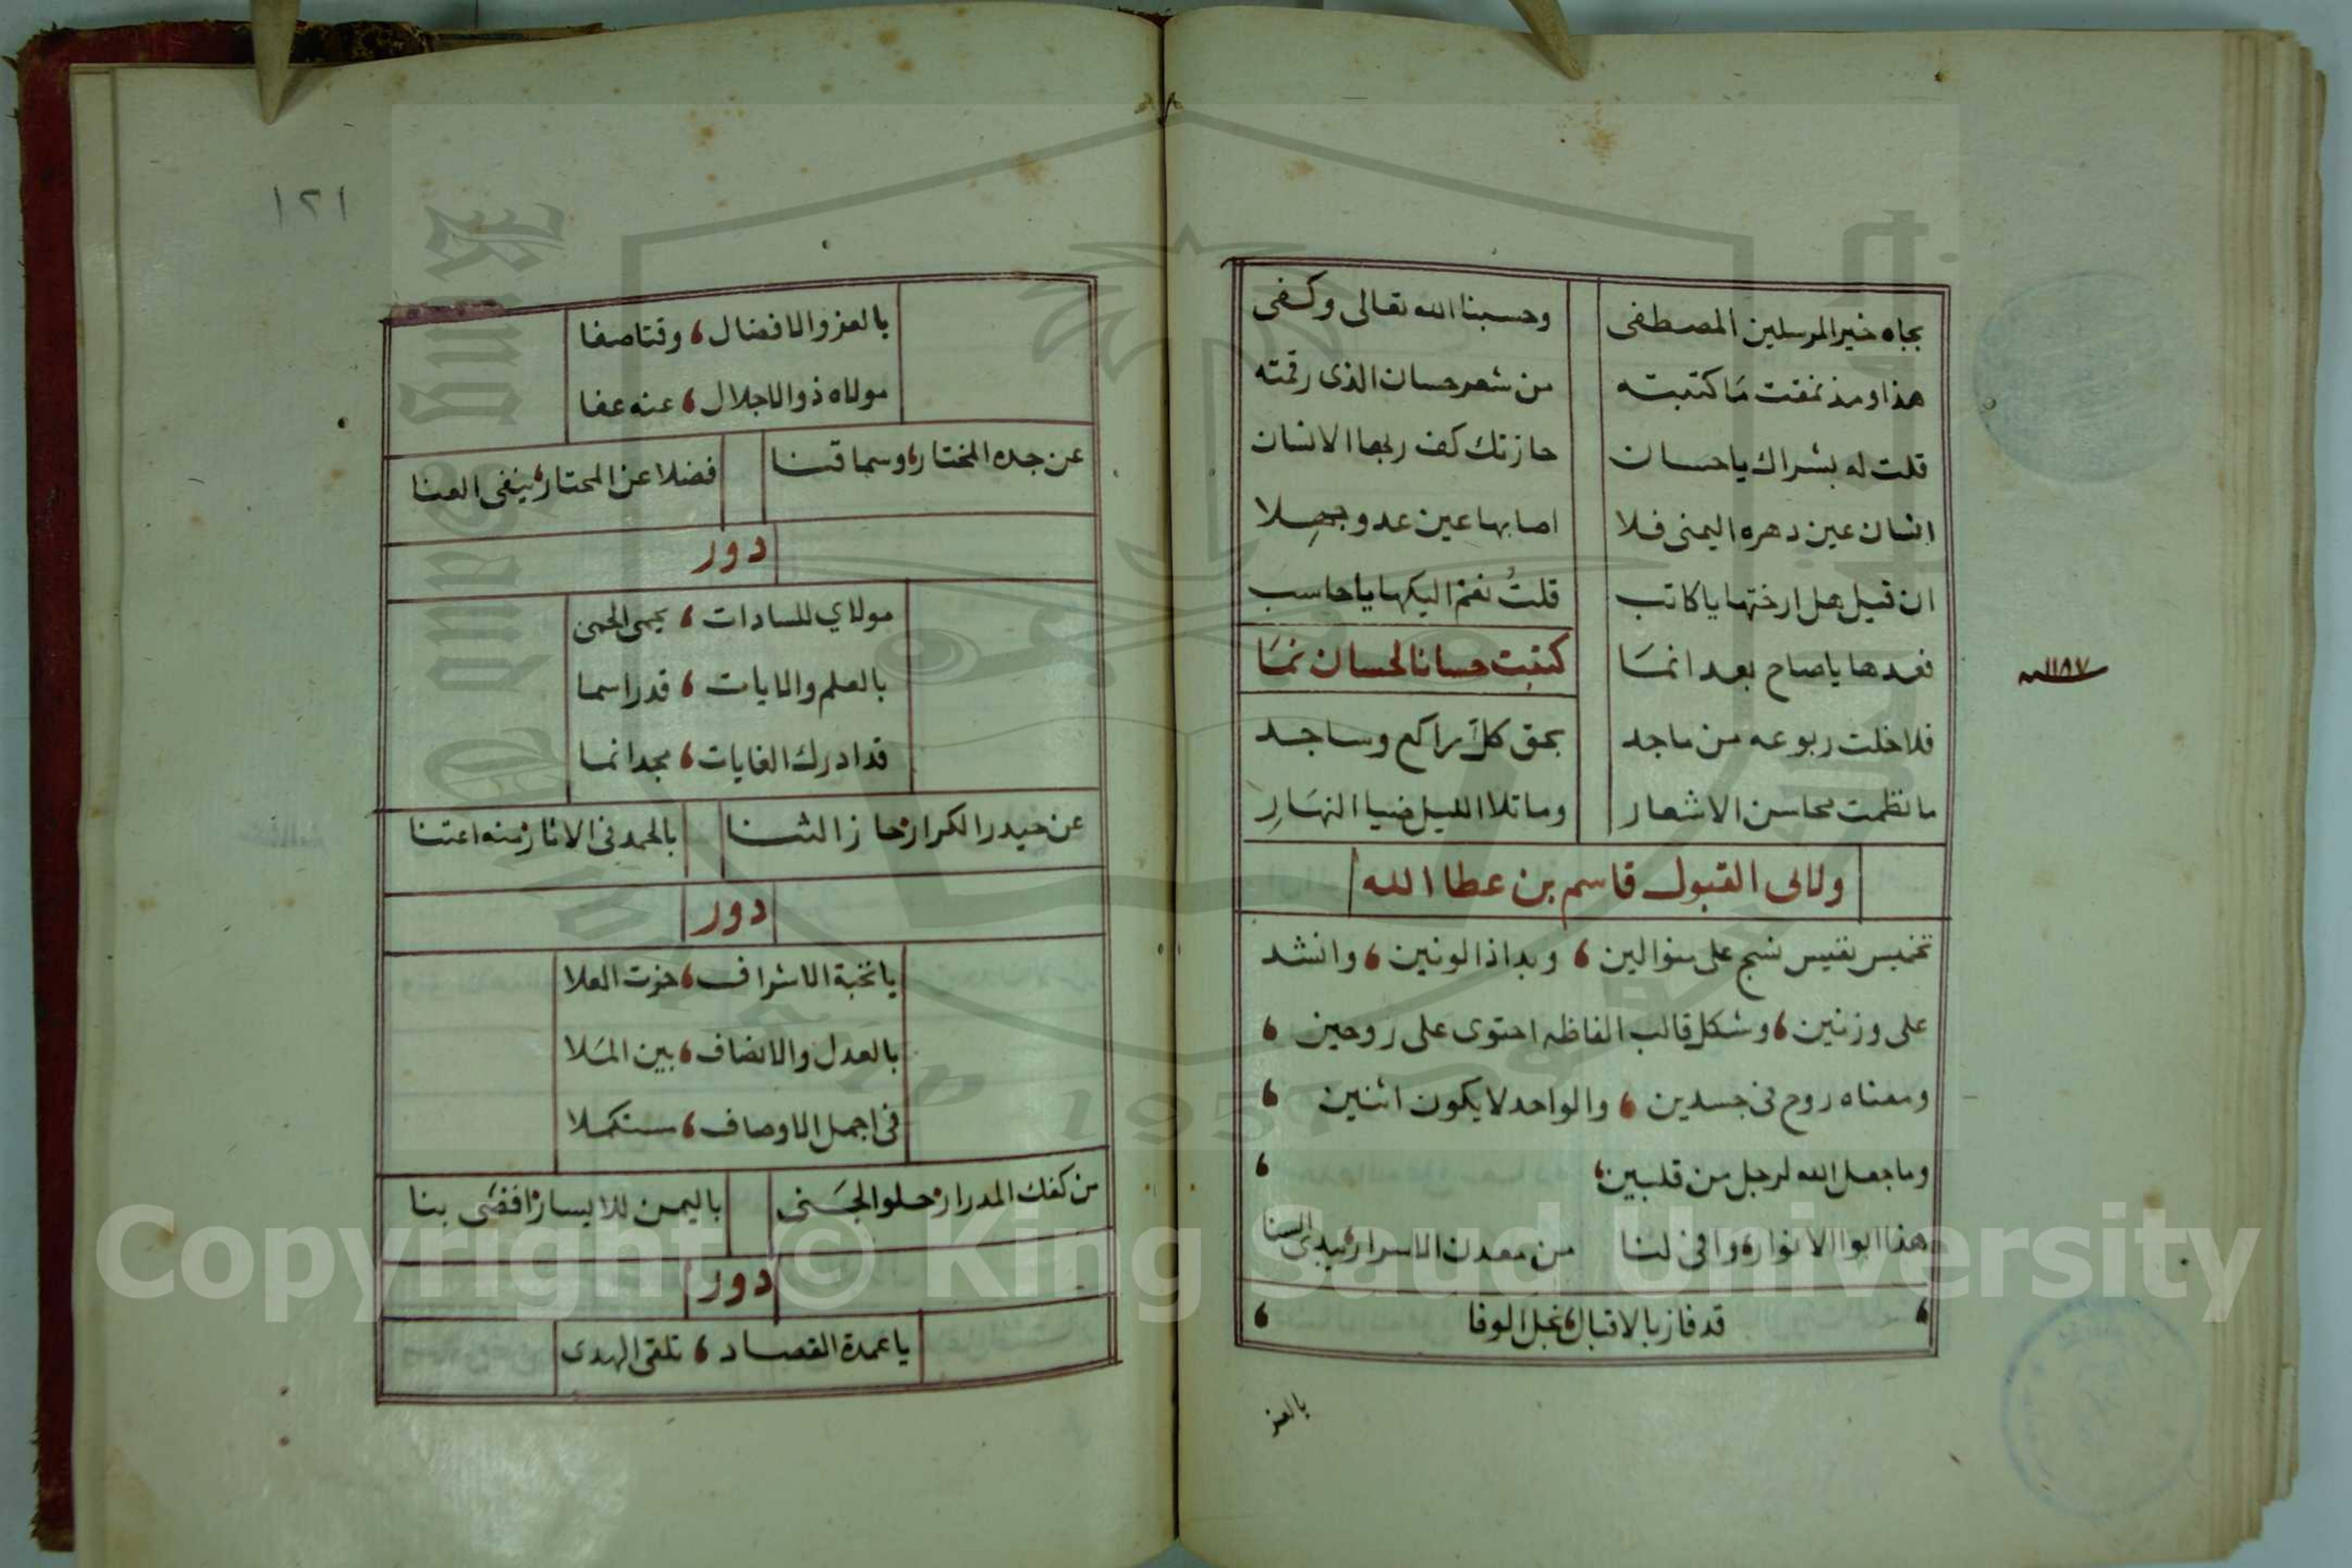 بجاه خير المرسلين المصطفى وحسبنا الله تعالى وكفى
هذا ومذ نمقت ما كتبته من شعر حسان الذى رقمته
قلت له بشراك يا حسان حازتك كف ربها الانسان
انسان عين دهره اليمنى فلا اصابها عين عدو جهلا
ان قيل هل ارختها يا كاتب قلتُ نعم اليكها يا حاسب
فعدها يا صاح بعد انمَا كتبت حسانا لحسان نمَا
١١٨٧
فلا خلت ربوعه من ماجد بحق كل راكع وساجد
ما نظمت محاسن الاشعار وما تلا الليل ضيا النهَارِ
ولابى القبول قاسم بن عطا الله
تخميس نفيس نسج على منوالين، وبداذا لونين، وانشد
على وزنين، وشكل قالب الفاظه احتوى على روحين،
ومعناه روح فى جسدين، والواحد لا يكون اثنين،
وما جعل الله لرجل من قلبين،
هذا ابوا الانوار، وافى لنا من معدن الاسرار، يبدى السنا
قد فاز بالاقبال، نجل الوفا
بالعز
١٢١
بالعز والافضال، وقتا صفا
مولاه ذو الاجلال، عنه عفا
عن جده المختار، وسما قنا فضلا عن المحتار، ينفى العنا
دور
مولاي للسادات، يحمى الحمى
بالعلم والايات، قدرا سما
قد ادرك الغايات، مجدا نما
عن حيدر الكرار، حاز الثنا بالحمد فى الاثار، منه اعتنا
دور
يا نخبة الاشراف، حزت العلا
بالعدل والانصاف، بين المَلا
فى اجمل الاوصاف، مستكملا
من كفك المدرار، حلو الجَنى باليمن للايسار، افضَى بنا
دور
يا عمدة القصاد، تلقى الهدى
Copyright © King Saud University
1957